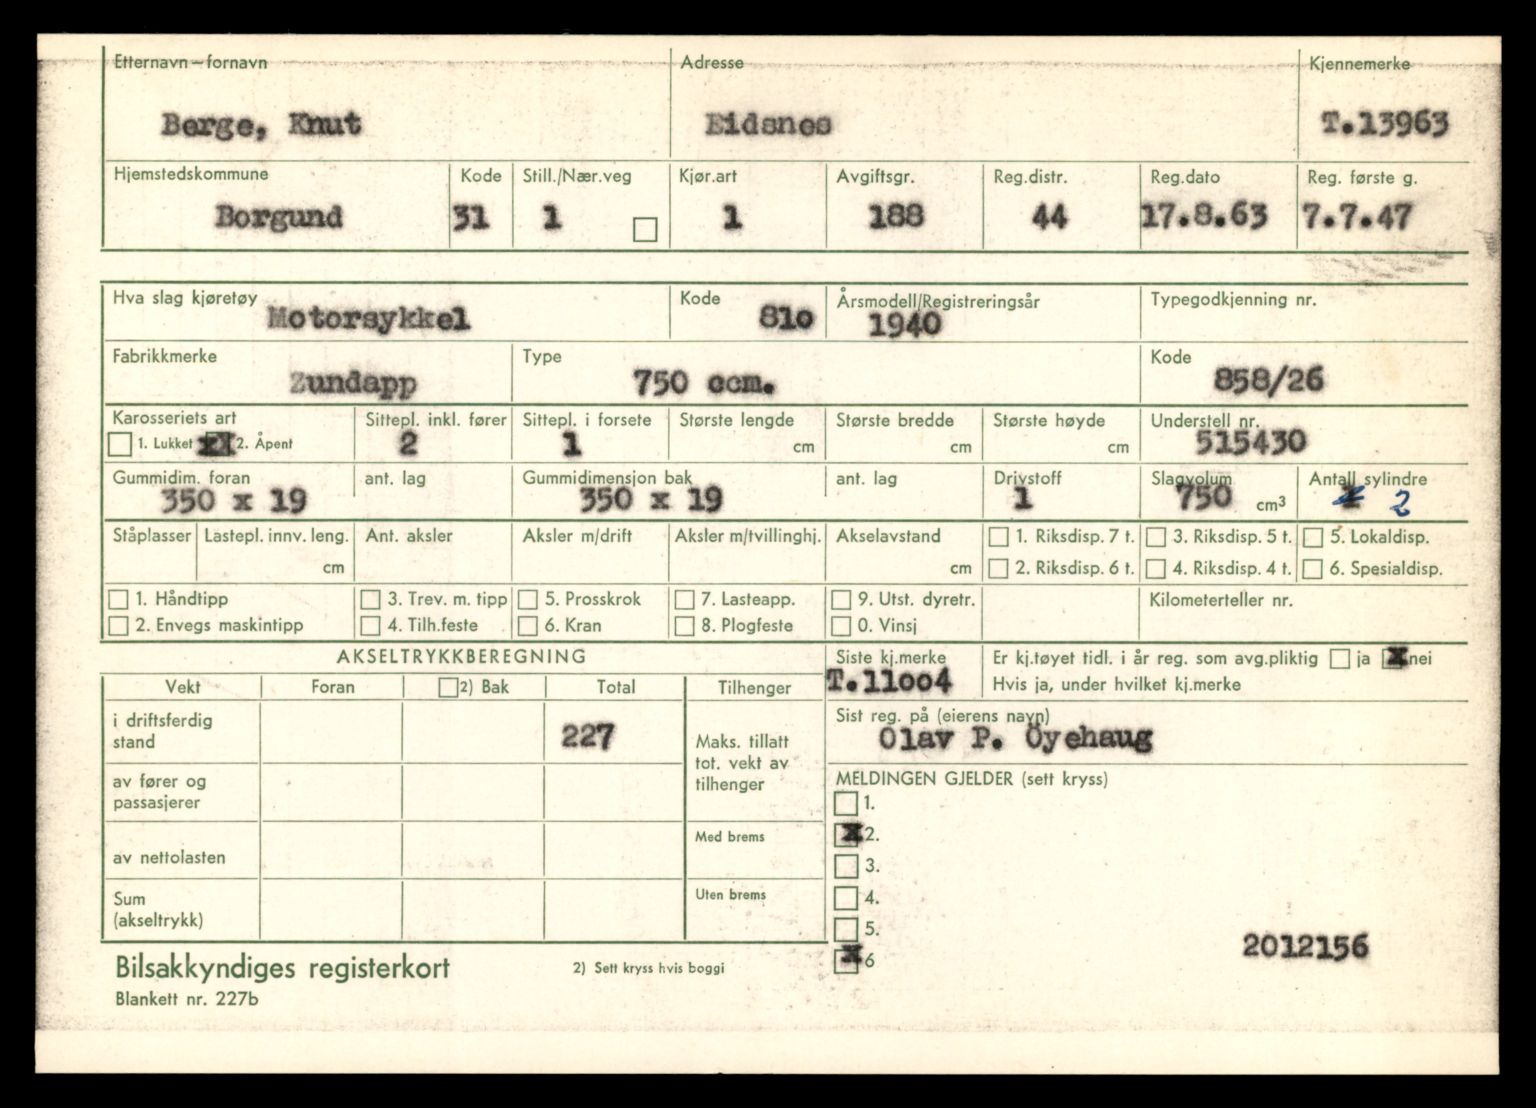 Etternavn – fornavn Adresse Kjennemerke
Berge, Knut Eidsnes T.13963
Hjemstedskommune Kode Still./Nær.veg Kjør.art Avgiftsgr. Reg.distr. Reg.dato Reg. første g.
Borgund 31 1 1 188 44 17.8.63 7.7.47
Hva slag kjøretøy Kode Årsmodell/Registreringsår Typegodkjenning nr.
Motorsykkel 810 1940
Fabrikkmerke Type Kode
Zundapp 750 ccm. 858/26
Karosseriets art Sittepl. inkl. fører Sittepl. i forsete Største lengde Største bredde Største høyde Understell nr.
1. Lukket x 2. Åpent 2 1 cm cm cm 515430
Gummidim. foran ant. lag Gummidimensjon bak ant. lag Drivstoff Slagvolum Antall sylindre
350 x 19 350 x 19 1 750 cm³ 2
Ståplasser Lastepl. innv. leng. Ant. aksler Aksler m/drift Aksler m/tvillinghj. Akselavstand 1. Riksdisp. 7 t. 3. Riksdisp. 5 t. 5. Lokaldisp.
cm cm 2. Riksdisp. 6 t. 4. Riksdisp. 4 t. 6. Spesialdisp.
1. Håndtipp 3. Trev. m. tipp 5. Prosskrok 7. Lasteapp. 9. Utst. dyretr. Kilometerteller nr.
2. Envegs maskintipp 4. Tilh.feste 6. Kran 8. Plogfeste 0. Vinsj
AKSELTRYKKBEREGNING Siste kj.merke Er kj.tøyet tidl. i år reg. som avg.pliktig ja x nei
Vekt Foran 2) Bak Total Tilhenger T.11004 Hvis ja, under hvilket kj.merke
i driftsferdig stand 227 Maks. tillatt tot. vekt av tilhenger
Sist reg. på (eierens navn)
Olav P. Öyehaug
av fører og passasjerer
MELDINGEN GJELDER (sett kryss)
1.
Med brems x 2.
av nettolasten 3.
Sum (akseltrykk) Uten brems 4.
5.
2012156
Bilsakkyndiges registerkort 2) Sett kryss hvis boggi x 6
Blankett nr. 227b